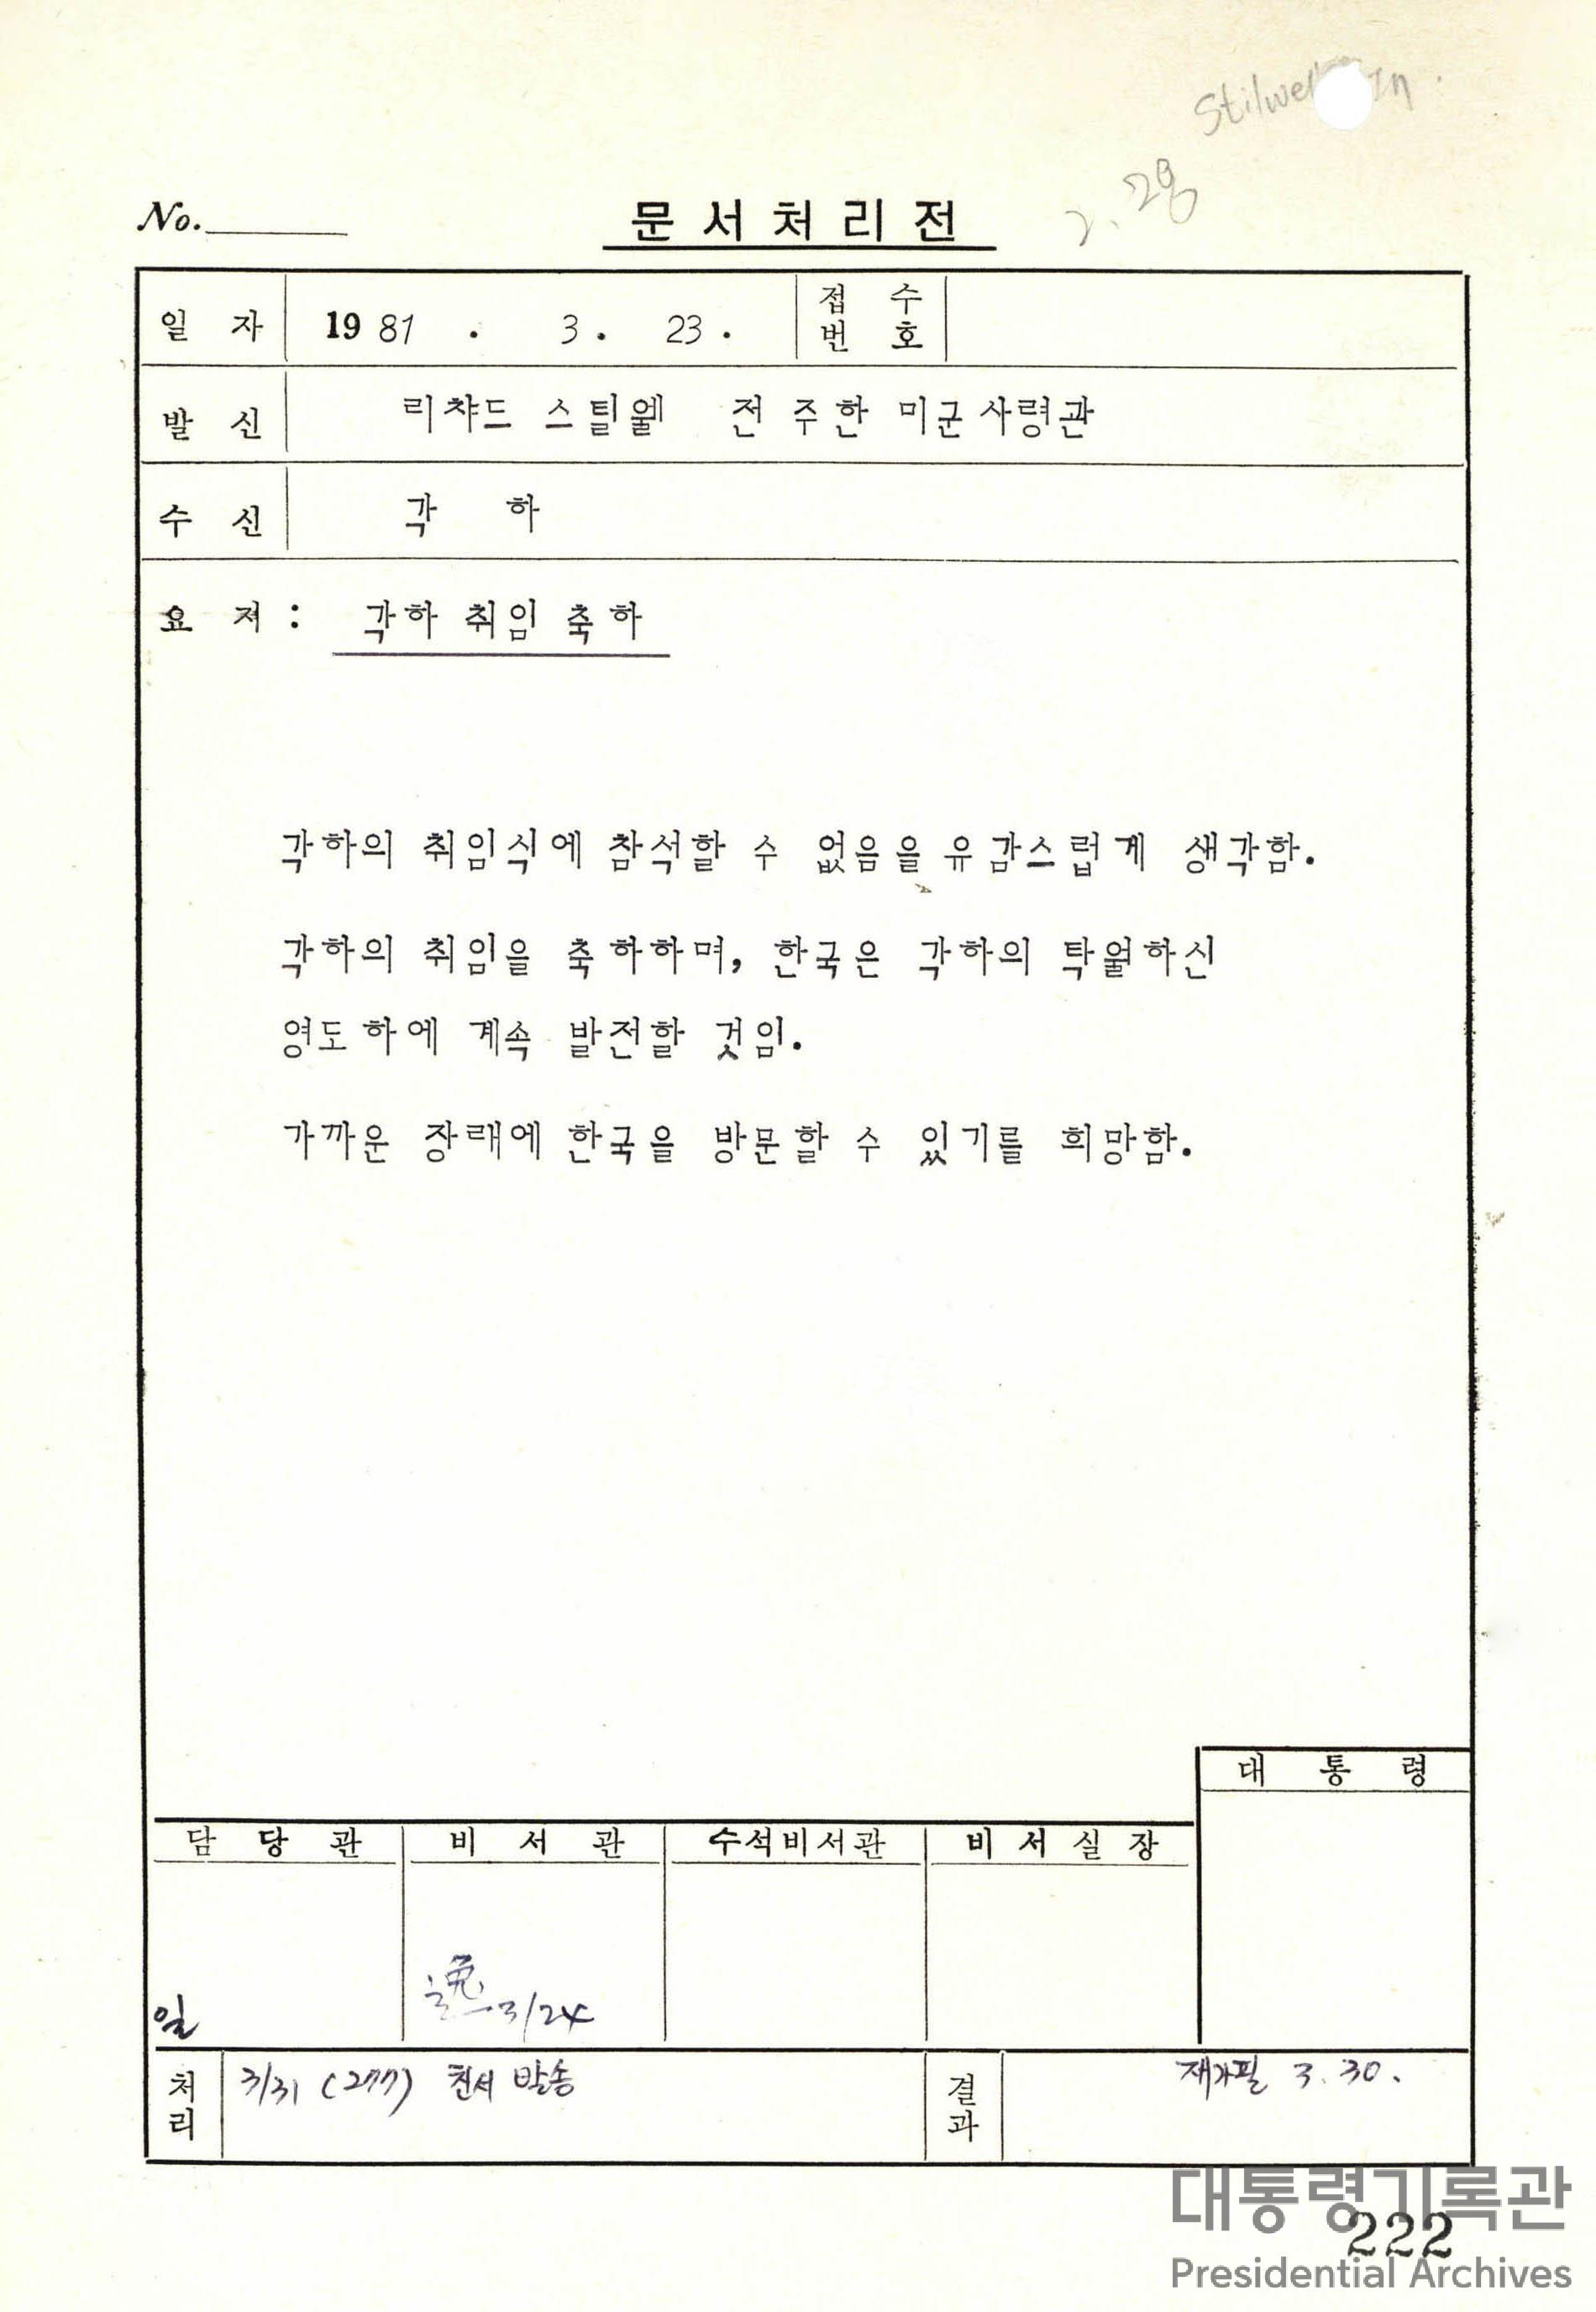 Stilwell In
No.
문서처리전
일 자 1981 . 3 . 23 . 접수번호
발 신 리챠드 스틸웰 전 주한 미군사령관
수 신 각 하
요 저 : 각하 취임 축하
각하의 취임식에 참석할 수 없음을 유감스럽게 생각함.
각하의 취임을 축하하며, 한국은 각하의 탁월하신
영도하에 계속 발전할 것임.
가까운 장래에 한국을 방문할 수 있기를 희망함.
대 통 령
담 당 관 비 서 관 수석비서관 비 서 실 장
일 3/24
처리 3/31 (277) 친서 발송 결과 재가필 3.30.
대통령기록관
222
Presidential Archives